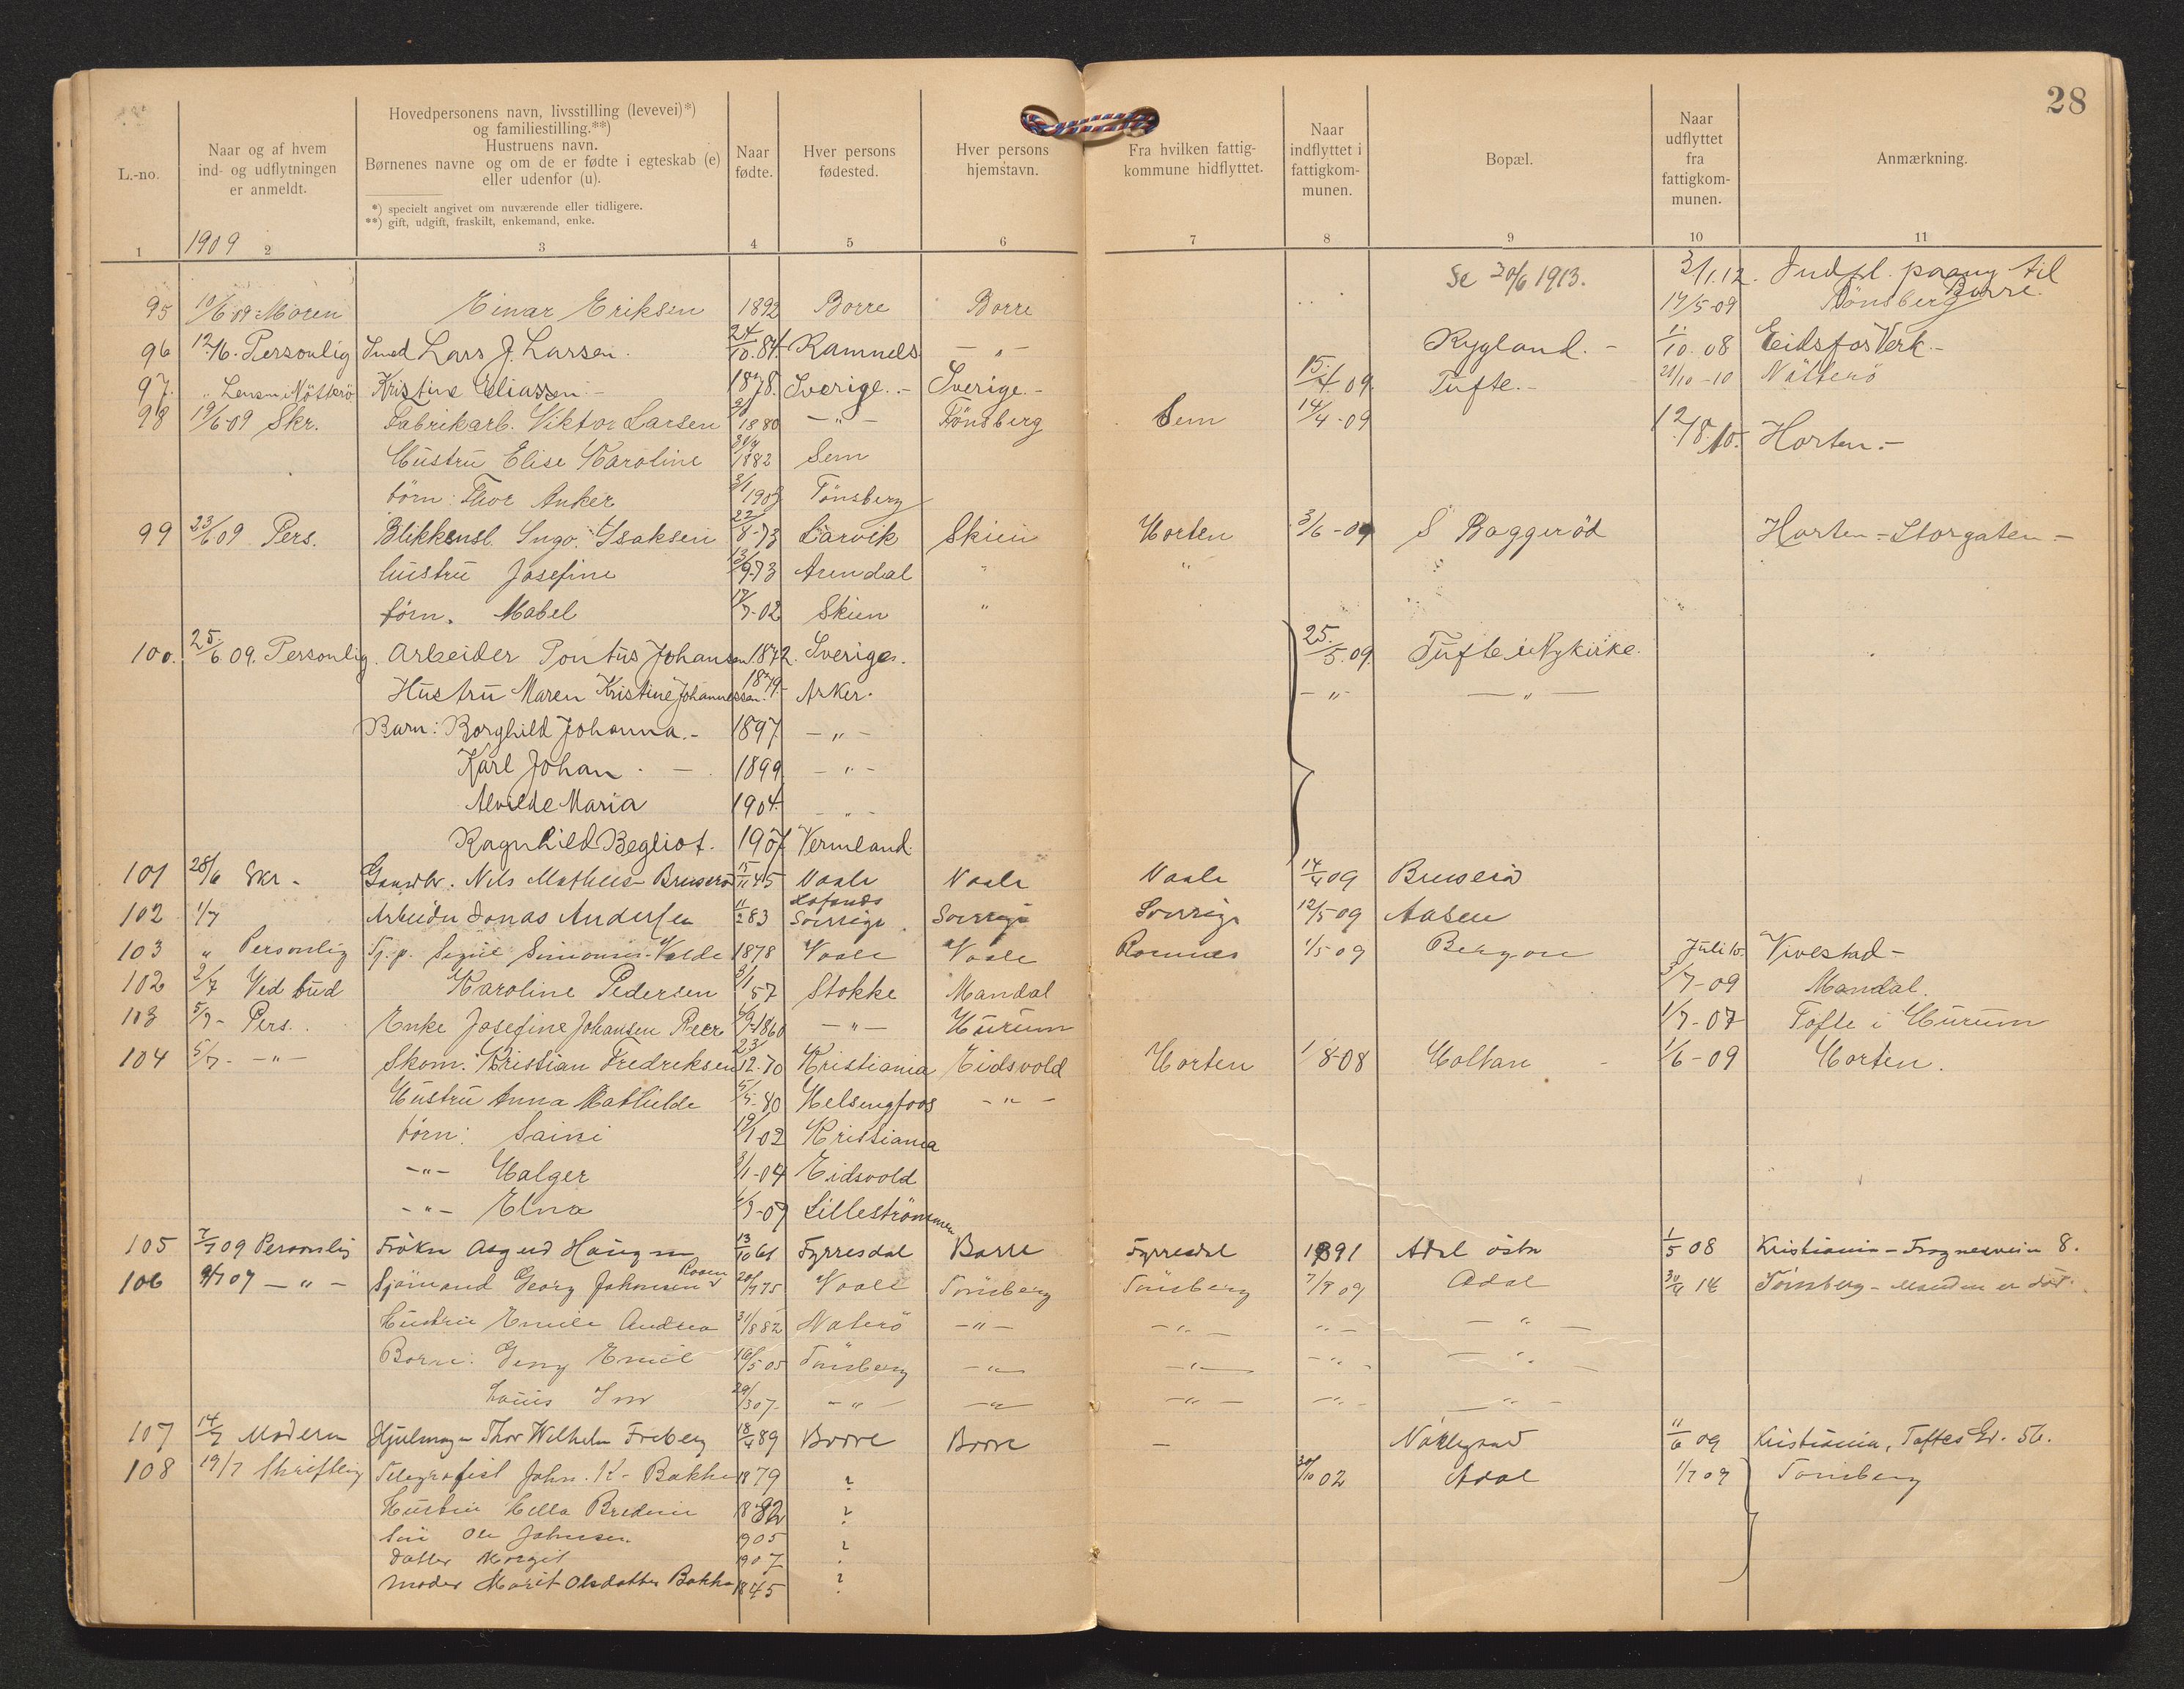 28
L.-no.
Naar og af hvem ind- og udflytningen er anmeldt.
Hovedpersonens navn, livsstilling (levevei)*)
og familiestilling.**)
Hustruens navn.
Børnenes navne og om de er fødte i egteskab (e)
eller udenfor (u).
*) specielt angivet om nuværende eller tidligere.
**) gift, udgift, fraskilt, enkemand, enke.
Naar fødte.
Hver persons fødested.
Hver persons hjemstavn.
Fra hvilken fattigkommune hidflyttet.
Naar indflyttet i fattigkommunen.
Bopæl.
Naar udflyttet fra fattigkommunen.
Anmærkning.
1 2 3 4 5 6 7 8 9 10 11
1909
Se 30/6 1913. 3/1.12. Indfl. paany til Borre.
95 10/6 09 Moren Einar Eriksen 1892 Borre Borre 17/5-09 Tönsberg
96 12/6. Personlig Smed Lars J. Larsen. 24/10.84 Ramnes — " — Rygland. - 1/10.08 Eidsfos Verk.-
97. " Lensm. i Nötterö Kristine Eliassen - 1878. Sverige. - Sverige. - 15/4 09. Tufte. - 21/10-10 Nötterö
98 19/6-09 Skr. Fabrikarb. Viktor Larsen 1880 — " — Tönsberg Sem 14/4-09 12/8.10. Horten. -
Hustru Elise Karoline 1882 Sem
börn: Thor Anker Tönsberg
99 23/6 09 Pers. Blikkensl. Ingv. Isaksen 22/8-73 Larvik Skien Horten 3/6-09 S Baggeröd Horten - Storgaten -
hustru Josefine 13/9-73 Arendal " "
börn. Mabel 17/7-02 Skien "
100. 25/6 09. Personlig. Arbeider Pontus Johansen 1872. Sverige. 25./5.09 Tufte i Nykirke.
Hustru Maren Kristine Johannessen. 1879- Aker. - " - — " —
Barn: Borghild Johanna. - 1897 — " —
Karl Johan. - 1899 — " —
Alvilde Maria 1904. — " —
Ragnhild Begliot. 1907 Vermland.
101 28/6 Skr. - Gaardbr. Nils Mathias Bruserö 15/11 45 Vaale Vaale Vaale 14/4 09 Bruserö
102 1/7 Arbeider Jonas Andersen 11/2 83 Sverrige Sverrige Sverrige 12/5-09 Aasen
103 " Personlig Tj. p. Simonsen 1878 Vaale Vaale Ramnes 1/5 09 Juli 10. Vivestad -
102 2/7 Ved bud Karoline Pedersen 3/1 57 Stokke Mandal 3/7-09 Mandal.
103 5/7- Pers. Enke Josefine Johansen 6/9-1860 — " — Hurum 1/7-07 Tofte i Hurum
104 5/7- - " - Skom. Kristian Fredriksen 23/12.70 Kristiania Eidsvold Horten 1/8-08 Holtan 1/6-09 Horten.
Hustru Anna Mathilde 5/5-80 Helsingfors - " -
börn: Saini 19/1 02 Kristiania
- " - Halger 3/1-04 Eidsvold
- " - Elna Lilleströmmen
105 7/7 09 Personlig Fröken Haugen 13/10 61 Fyrresdal Borre Fyrresdal 1891 Adal östre 1/5 08 Kristiania - Frognerveien 8.
106 9/7 07 — " — Sjömand Georg Johansen 20/7 75 Vaale Tönsberg Tönsberg 7/7 09 Adal 30/4 14 Tönsberg - Manden er död.
Hustru Emilie Andrea 31/8 82 Nöterö - " - - " - - " - - " -
Börn: Emil 16/5 05 Tönsberg - " - - " - - " - - " -
Louis 29/3 07- - " - - " - - " - - " - - " -
107 14/7 Moderen Hjulmager Thor Wilhelm Freberg 18/4 89 Borre Borre — 11/6 09 Kristiania, Toftes Gd. 56.
108 19/7 Skriftlig Telegrafist John. K. Bakke 1879 ? 30/10 02 Adal 1/7 09 Tönsberg
Hustru Hella 1882 ?
Sön Ole Johnsen. 1905 ?
Datter Margit 1907
moder Marit Olsdatter Bakke 1845 ?